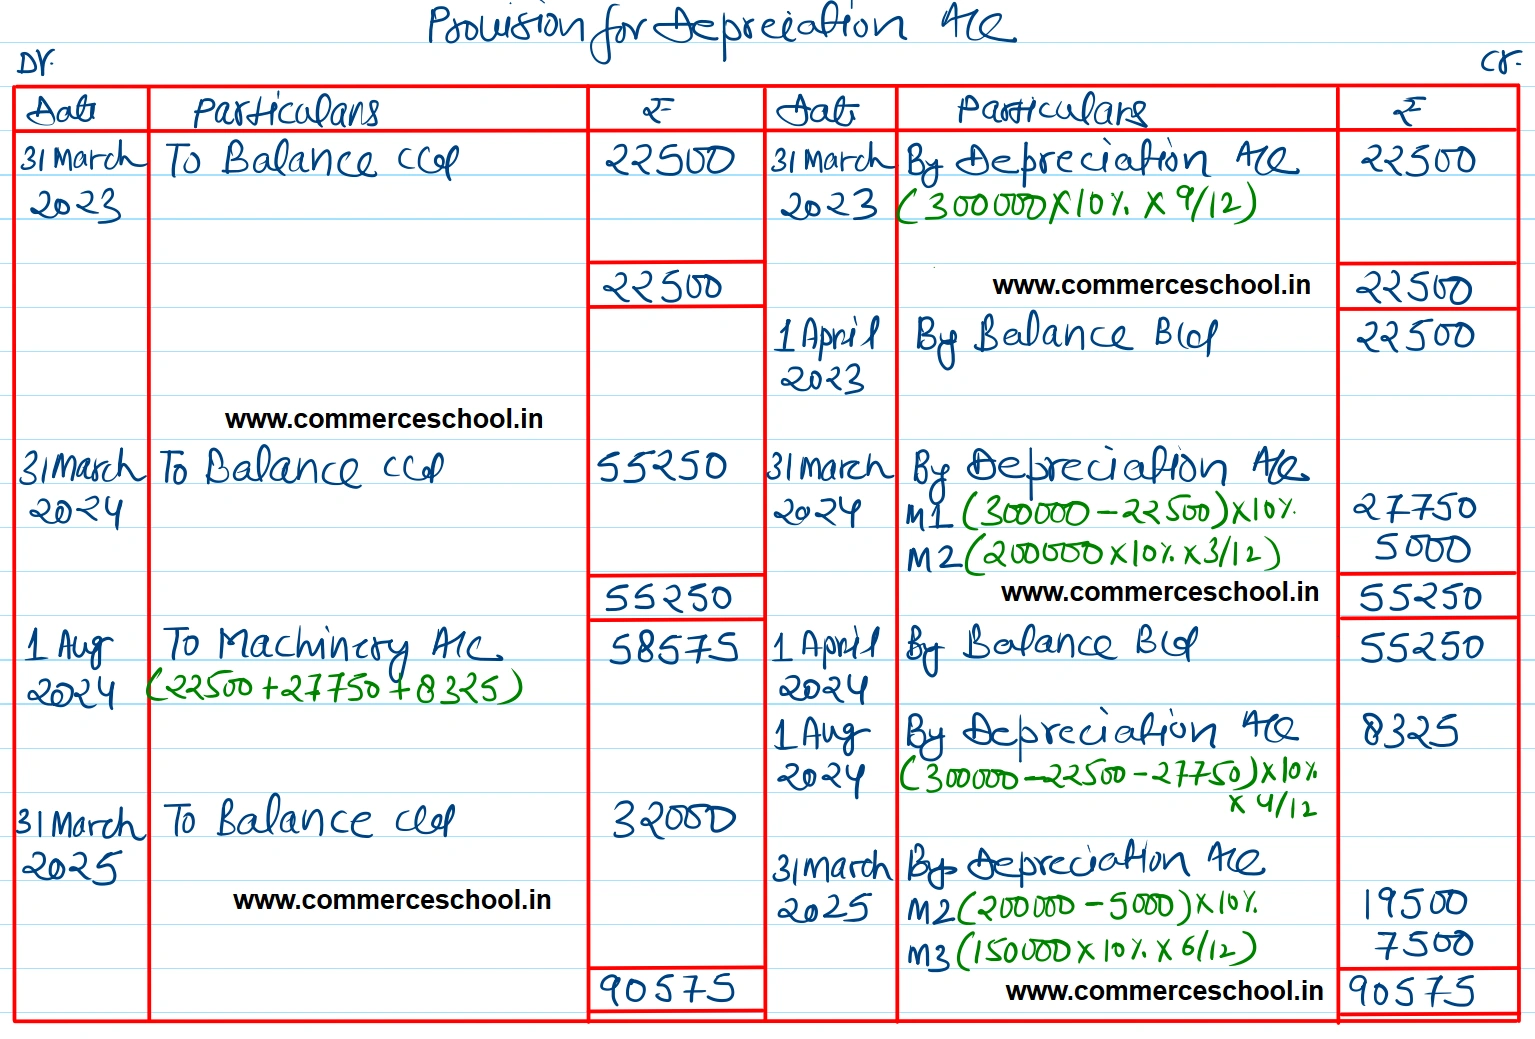 Provision for Depreciation A/c
Dr. Cr.
Date Particulars ₹ Date Particulars ₹
31 March To Balance C/d 22500 31 March By Depreciation A/c 22500
2023 2023 (300000×10% × 9/12)
22500 www.commerceschool.in 22500
1 April By Balance B/d 22500
2023
www.commerceschool.in
31 March To Balance C/d 55250 31 March By Depreciation A/c
2024 2024 M1 (300000-22500)×10% 27750
M2 (200000×10%×3/12) 5000
55250 www.commerceschool.in 55250
1 Aug To Machinery A/c 58575 1 April By Balance B/d 55250
2024 (22500+27750+8325) 2024
1 Aug By Depreciation A/c 8325
2024 (300000-22500-27750)×10%
× 4/12
31 March To Balance C/d 32000
2025 31 March By Depreciation A/c
www.commerceschool.in 2025 M2 (200000-5000)×10% 19500
M3 (150000×10%×6/12) 7500
90575 www.commerceschool.in 90575